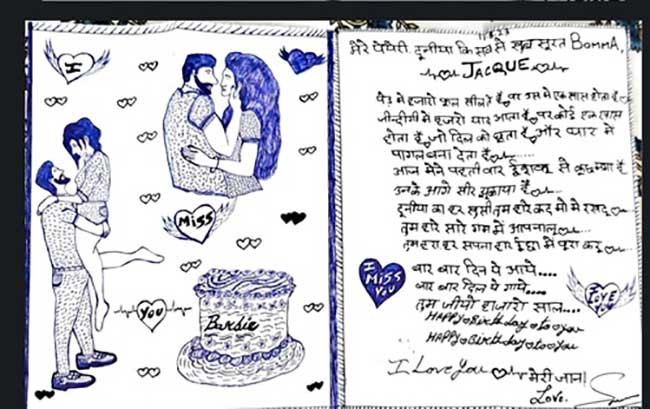 I
Miss
YOU
Bardie
11.8.23
मेरे पेयेरी, दूनीया कि सब से खुब सूरत BOMMA,
JACQUE
पेड मे हजारो फुल खीलते है, पर उस मे एक खास होता है
जीन्दीगी मे हजारो यार आता है, पर कोई एक खास
होता है, जो दिल को छुता है, और प्यार मे
पागल बना देता है
आज मेने पहली वार से कुछ है
उनके आगे सीर झुकाया है
दूनीया का हर खुसी तुम हारे कदमो मे रखदू
तुम हारे सारे गम मे आपनालू
तुम हारा हर सपना हर मे पूरा करू
I MISS YOU
वार वार दिन ये आये....
वार वार दिल ये गाये....
तुम जीयो हजारो साल....
I LOVE YOU
HAPPY Birthday to you
HAPPY Birthday to you
I Love You मेरी जान।
Love.